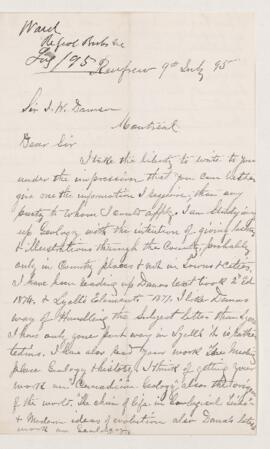 Ward
July / 95
Renfrew 9th July 95
Sir J. W. Dawson
Montreal
Dear Sir
I take the liberty to write to you
under the impression that you can better
give me the information I require, than any
party to whom I could apply. I am studying
up Geology with the intention of giving lectures
& illustrations through the Country, probably
only in Country places & not in Towns & Cities.
I have been reading up Danas text book 2nd Ed
1874. & Lyells Elements 1871. I like Danas
way of Handling the subject better than
I have only gone part way in Lyell it is rather
tedious. I have also read your work The Meeting
place Geology & History. I think of getting your
work on "Canadian Geology", also the origin
of the world, "The chain of life in Geological time"
& Modern ideas of evolution also Dana's latest
work on Geology